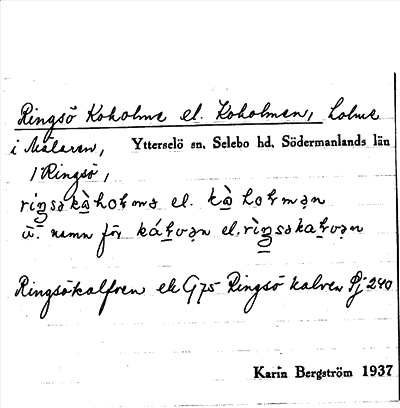 Ringsö Koholme el. Koholmen, holme
i Mälaren, Ytterselö sn, Selebo hd, Södermanlands län
/Ringsö,
kàhoɫmə el. kà hoɫmən
ü. namn för káɫvən el. rìŋsəkaɫvən
Ringsökalfven ek G75 Ringsö kalven Pj 240
Karin Bergström 1937